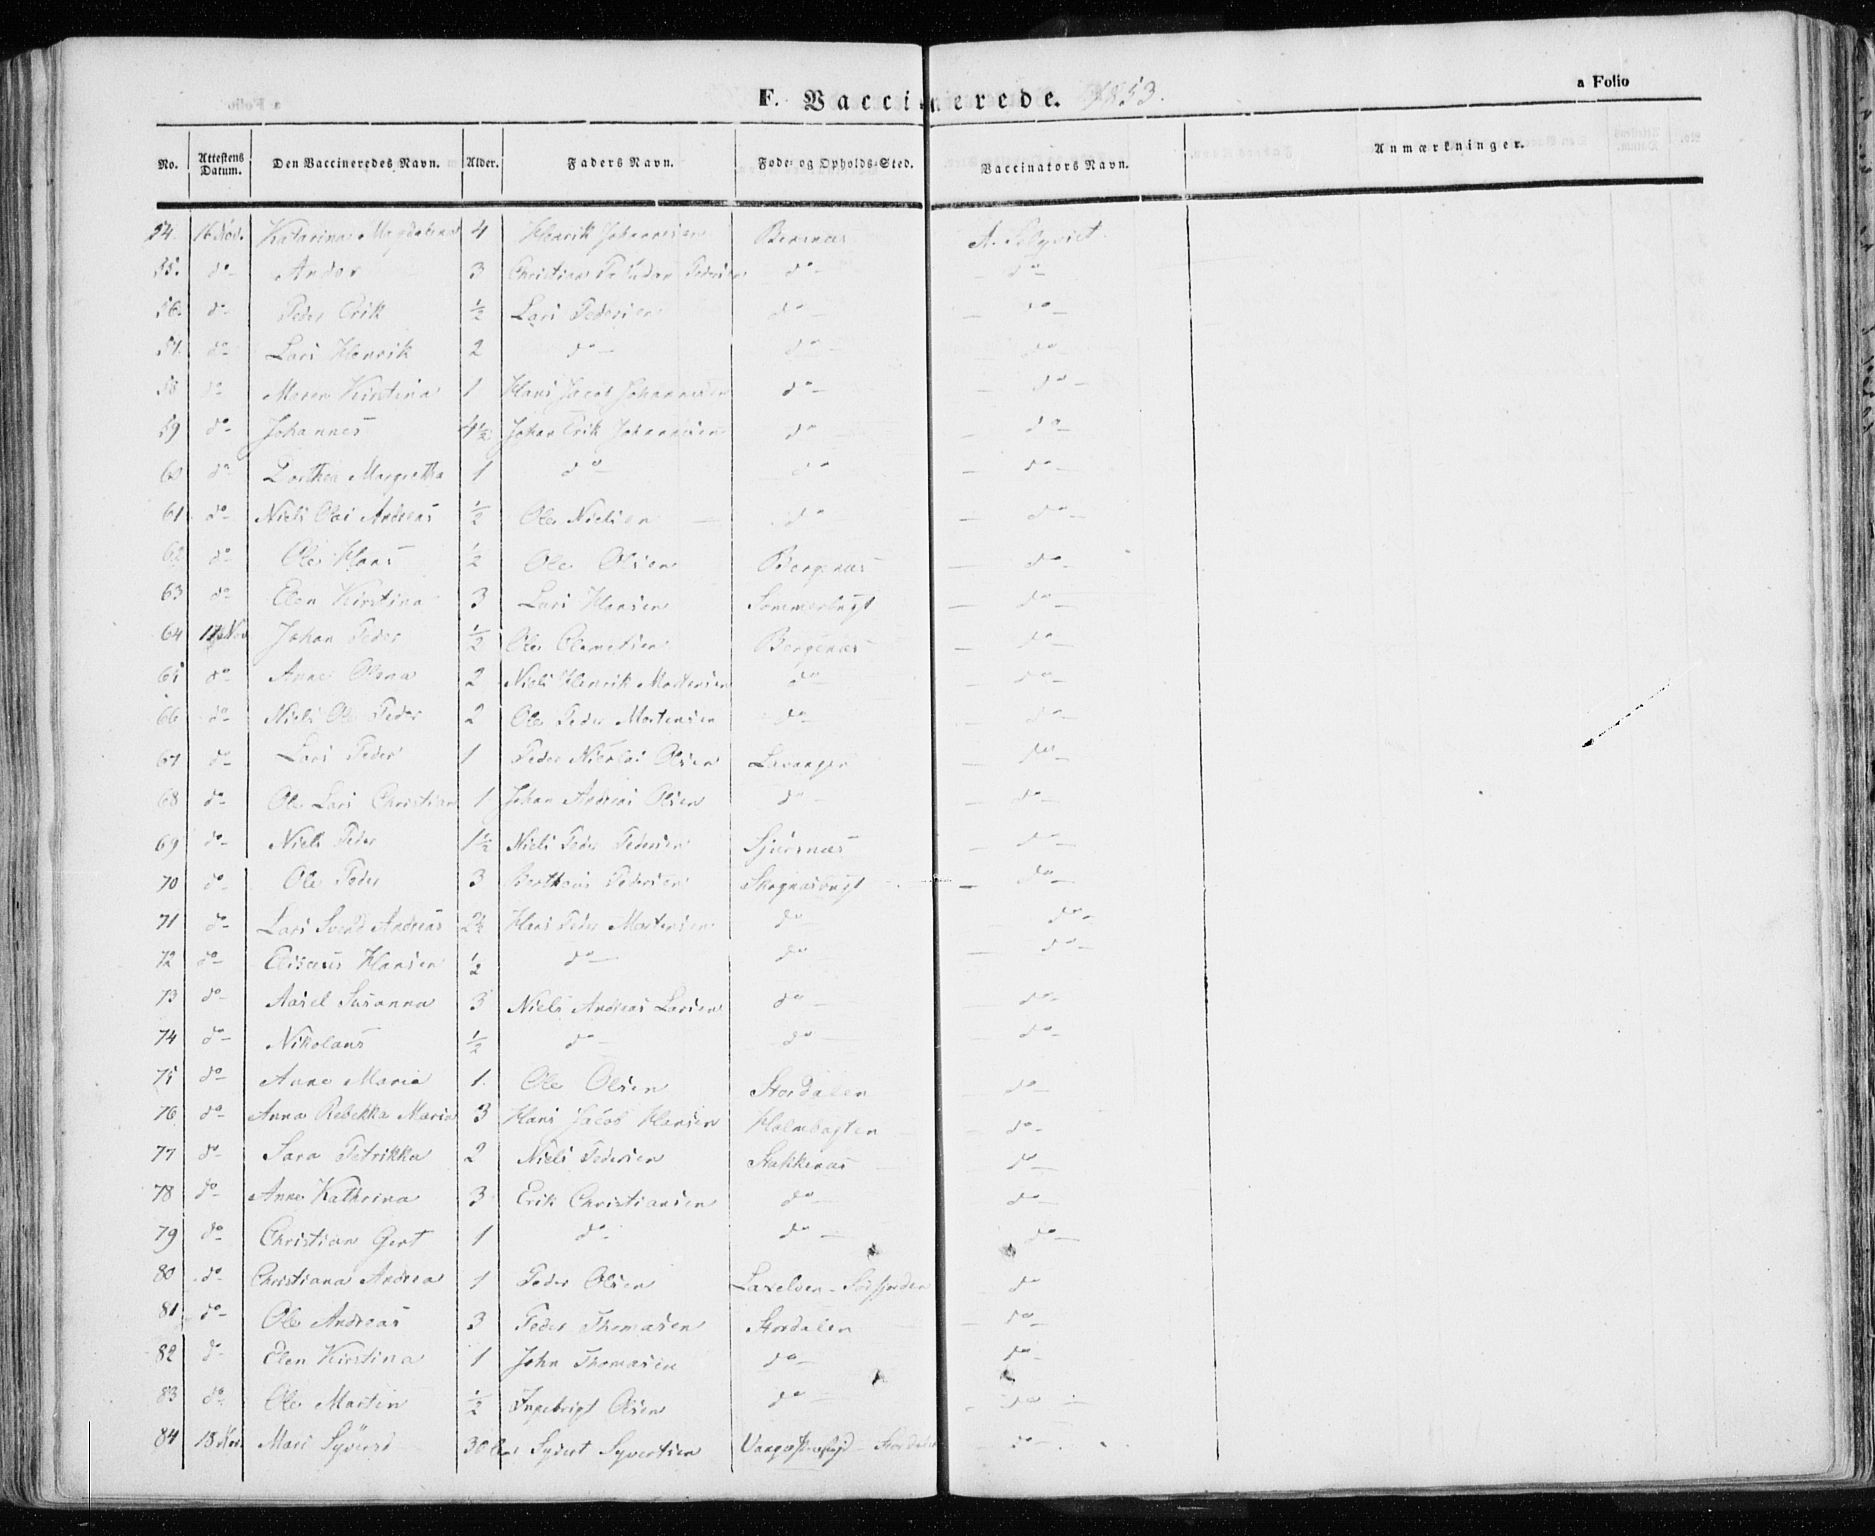 a Folio
F. Vaccinerede. 1853.
No. Attestens Datum. Den Vaccineredes Navn. Alder. Faders Navn. Føde- og Opholds-Sted. Vaccinators Navn. Anmærkninger.
54. 16 Nov. Katarina Magdalena 4 Henrik Johannesen A.
55. do Andor 3 Christian Pedersen do do
56. do Peder Erik ½ Lars Pedersen do do
57. do Lars Henrik 2 do do do
58 do Maren Kirstina 1 Hans Jacob Johannesen do do
59 do Johannes 4½ Johan Erik Johannesen do do
60 do Dorthea Margretha 1 do do do
61 do Niels Olai Andreas ½ Ole Nielsen do do
62 do Ole Hans ½ Ole Olsen Bergenæs do
63 do Elen Kirstina 3 Lars Hansen Sommerbugt do
64 17 Nov Johan Peder ½ Ole Clemetsen Bergenæs do
65 do Anne Olena 2 Niels Henrik Mortensen do do
66 do Niels Ole Peder 2 Ole Peder Mortensen do do
67 do Lars Peder 1 Peder Nicolai Olsen Lavanger do
68 do Ole Lars Christian 1 Johan Andreas Olsen do do
69 do Niels Peder 1½ Niels Peder Pedersen Sjursnæs do
70 do Ole Peder 3 Bertheus Pedersen Skognæsbugt do
71 do Lars Svend Andreas 2½ Hans Peder Mortensen do do
72 do Elisæus Hansen ½ do do do
73 do Aasel Susanna 3 Niels Andreas Larsen do do
74 do Nikolaus ½ do do do
75 do Anne Maria 1 Ole Olsen Stordalen do
76 do Anna Rebekka Maria 3 Hans Jacob Hansen Holmbugten do
77 do Sara Petrikka 2 Niels Pedersen Stakkenæs do
78 do Anne Kathrina 3 Erik Christiansen do do
79 do Christian Gert 1 do do do
80 do Christiana Andrea 1 Peder Olsen Laxelven - Sørfjorden do
81 do Ole Andreas 3 Peder Thomasen Stordalen do
82 do Elen Kirstina 1 John Thomasen do do
83 do Ole Martin ½ Ingebrigt Olsen do do
84 18 Nov. Mari 30 Syvert Syvertsen Stordalen do